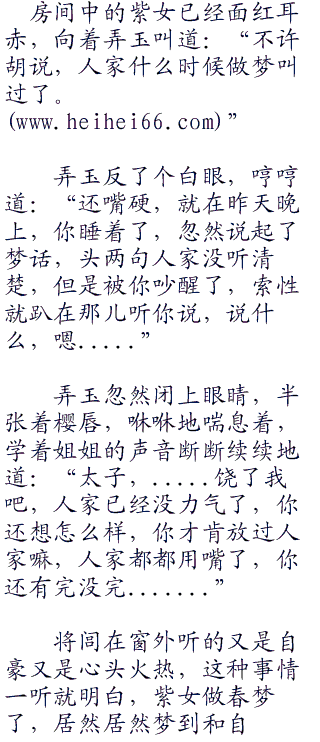 房间中的紫女已经面红耳
赤，向着弄玉叫道：“不许
胡说，人家什么时候做梦叫
过了。
(www.heihei66.com)”
弄玉反了个白眼，哼哼
道：“还嘴硬，就在昨天晚
上，你睡着了，忽然说起了
梦话，头两句人家没听清
楚，但是被你吵醒了，索性
就趴在那儿听你说，说什
么，嗯.....”
弄玉忽然闭上眼睛，半
张着樱唇，咻咻地喘息着，
学着姐姐的声音断断续续地
道：“太子，.....饶了我
吧，人家已经没力气了，你
还想怎么样，你才肯放过人
家嘛，人家都都用嘴了，你
还有完没完.......”
将闾在窗外听的又是自
豪又是心头火热，这种事情
一听就明白，紫女做春梦
了，居然居然梦到和自